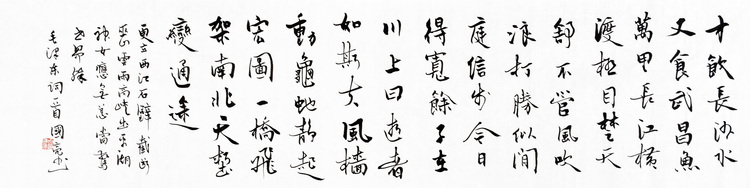 才飲長沙水
又食武昌魚
萬里長江橫
渡極目楚天
舒不管風吹
浪打勝似閒
庭信步今日
得寬餘子在
川上曰逝者
如斯夫風檣
動龜蛇靜起
宏圖一橋飛
架南北天塹
變通途
更立西江石壁截斷
巫山雲雨高峽出平湖
神女應無恙當驚
世界殊
毛澤東詞一首國